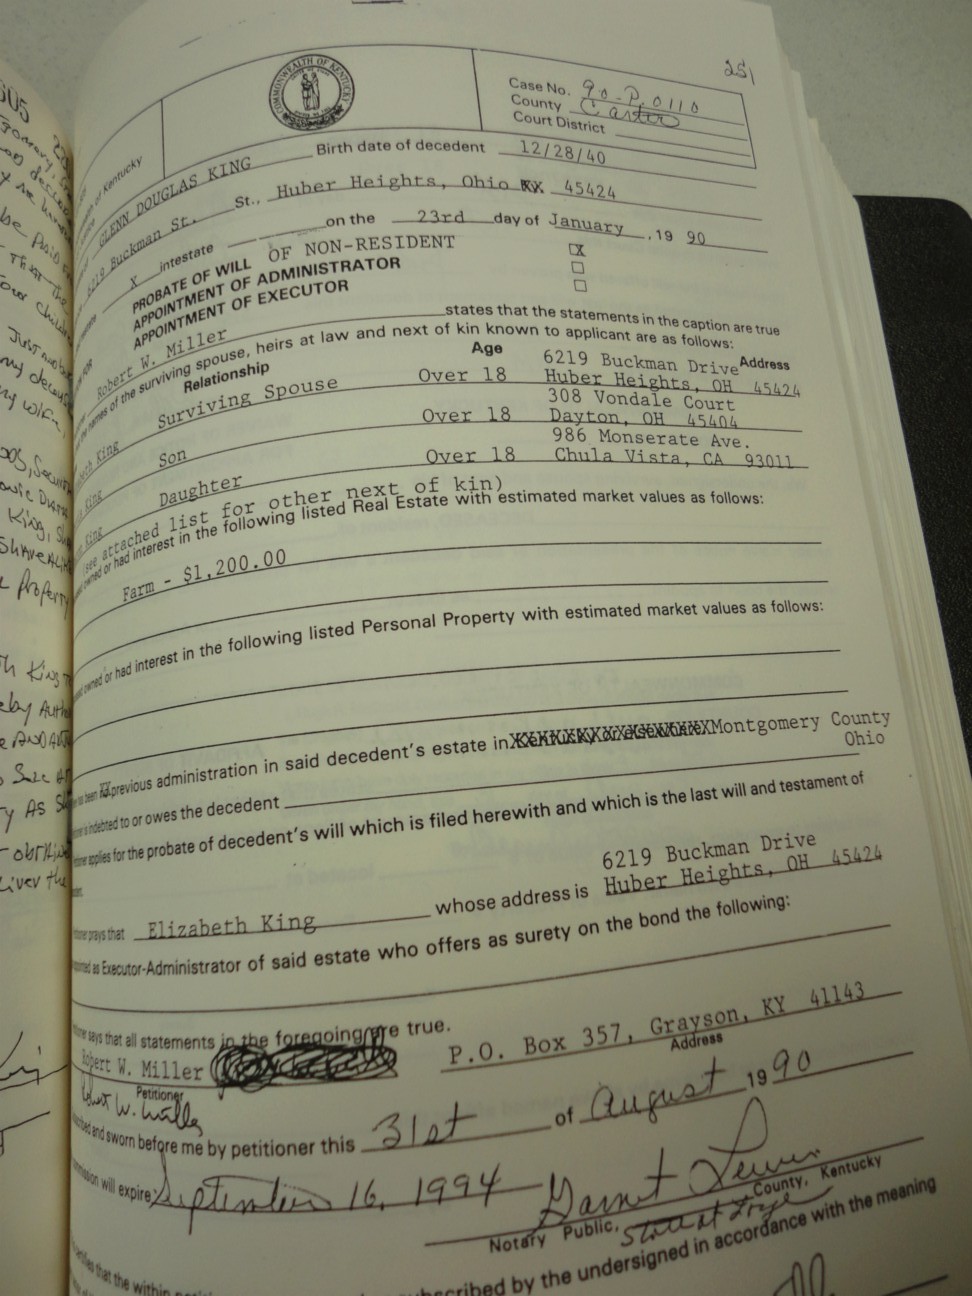 251
COMMONWEALTH OF KENTUCKY
Case No. 90-P-0110
County Carter
Court District
of Kentucky
GLENN DOUGLAS KING Birth date of decedent 12/28/40
6219 Buckman St. St., Huber Heights, Ohio KX 45424
X intestate on the 23rd day of January, 19 90
PROBATE OF WILL OF NON-RESIDENT X
APPOINTMENT OF ADMINISTRATOR
APPOINTMENT OF EXECUTOR
Robert W. Miller states that the statements in the caption are true
names of the surviving spouse, heirs at law and next of kin known to applicant are as follows:
Relationship Age Address
King Surviving Spouse Over 18 6219 Buckman Drive
Huber Heights, OH 45424
King Son Over 18 308 Vondale Court
Dayton, OH 45404
King Daughter Over 18 986 Monserate Ave.
Chula Vista, CA 93011
(see attached list for other next of kin)
owned or had interest in the following listed Real Estate with estimated market values as follows:
Farm - $1,200.00
owned or had interest in the following listed Personal Property with estimated market values as follows:
been XX previous administration in said decedent's estate in Montgomery County
Ohio
is indebted to or owes the decedent
applies for the probate of decedent's will which is filed herewith and which is the last will and testament of
prays that Elizabeth King whose address is 6219 Buckman Drive
Huber Heights, OH 45424
as Executor-Administrator of said estate who offers as surety on the bond the following:
says that all statements in the foregoing are true.
Robert W. Miller P.O. Box 357, Grayson, KY 41143
Petitioner Address
Robert W. Miller
and sworn before me by petitioner this 31st of August 19 90
will expire September 16, 1994
Notary Public, State at Large County, Kentucky
that the within
subscribed by the undersigned in accordance with the meaning